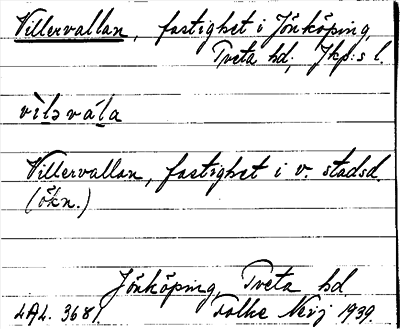 Villervallan, fastighet i Jönköping,
Tveta hd; Jkp:s l.
vìlǝvála
Villervallan, fastighet i v. stadsd.
(ökn.)
Jönköping, Tveta hd
LAL. 3681 Folke Neij 1939.